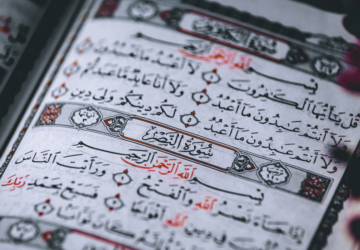 سُورَةُ الكَافِرُونَ
بِسْمِ ٱللَّهِ ٱلرَّحْمَٰنِ ٱلرَّحِيمِ
قُلْ يَٰٓأَيُّهَا ٱلْكَٰفِرُونَ ۝ لَآ أَعْبُدُ مَا تَعْبُدُونَ ۝
وَلَآ أَنتُمْ عَٰبِدُونَ مَآ أَعْبُدُ ۝ وَلَآ أَنَا۠ عَابِدٌ مَّا عَبَدتُّمْ ۝
وَلَآ أَنتُمْ عَٰبِدُونَ مَآ أَعْبُدُ ۝ لَكُمْ دِينُكُمْ وَلِىَ دِينِ ۝
سُورَةُ النَّصْرِ
بِسْمِ ٱللَّهِ ٱلرَّحْمَٰنِ ٱلرَّحِيمِ
إِذَا جَآءَ نَصْرُ ٱللَّهِ وَٱلْفَتْحُ ۝ وَرَأَيْتَ ٱلنَّاسَ
فِى دِينِ ٱللَّهِ أَفْوَاجًا ۝ فَسَبِّحْ بِحَمْدِ رَبِّكَ
كَانَ تَوَّابًۢا